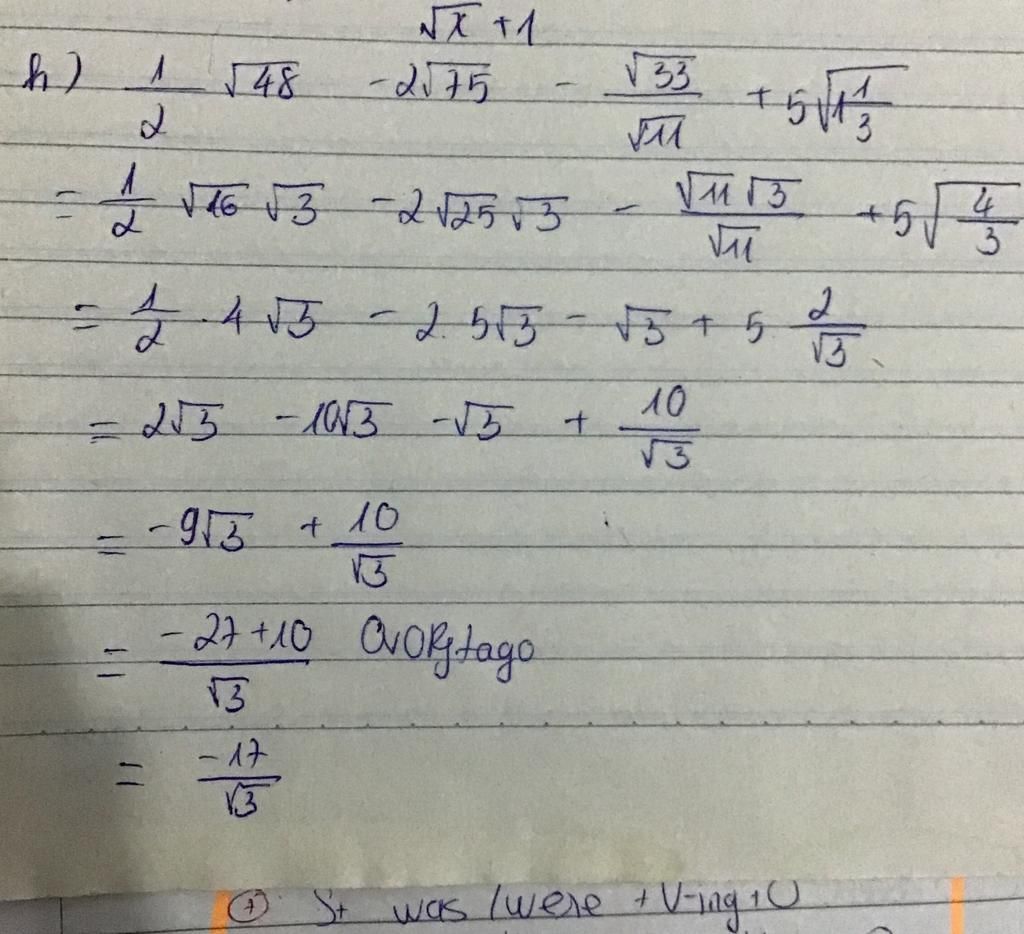 √x + 1
h) 1/2 √48 - 2√75 - √33/√11 + 5√(1 1/3)
= 1/2 √16 √3 - 2√25 √3 - √11 √3/√11 + 5√(4/3)
= 1/2 . 4 √3 - 2 . 5√3 - √3 + 5 . 2/√3
= 2√3 - 10√3 - √3 + 10/√3
= -9√3 + 10/√3
= (-27 + 10)/√3
= -17/√3
+ S+ was /were + V-ing + O